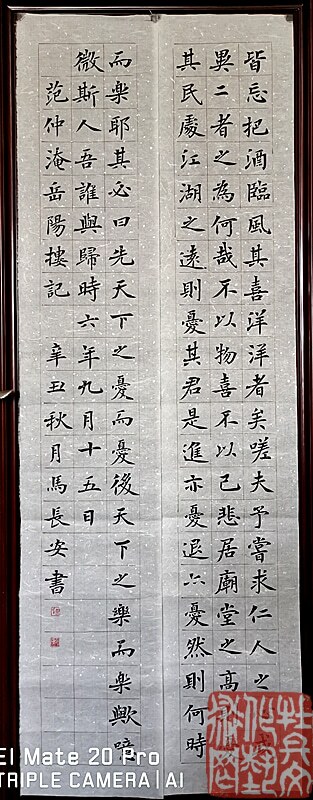 皆忘把酒臨風其喜洋洋者矣嗟夫予嘗求仁人之
異二者之為何哉不以物喜不以己悲居廟堂之高
其民處江湖之遠則憂其君是進亦憂退亦憂然則何時
而樂耶其必曰先天下之憂而憂後天下之樂而樂歟噫
微斯人吾誰與歸時六年九月十五日
范仲淹岳陽樓記 辛丑秋月馬長安書
EI Mate 20 Pro
TRIPLE CAMERA | AI